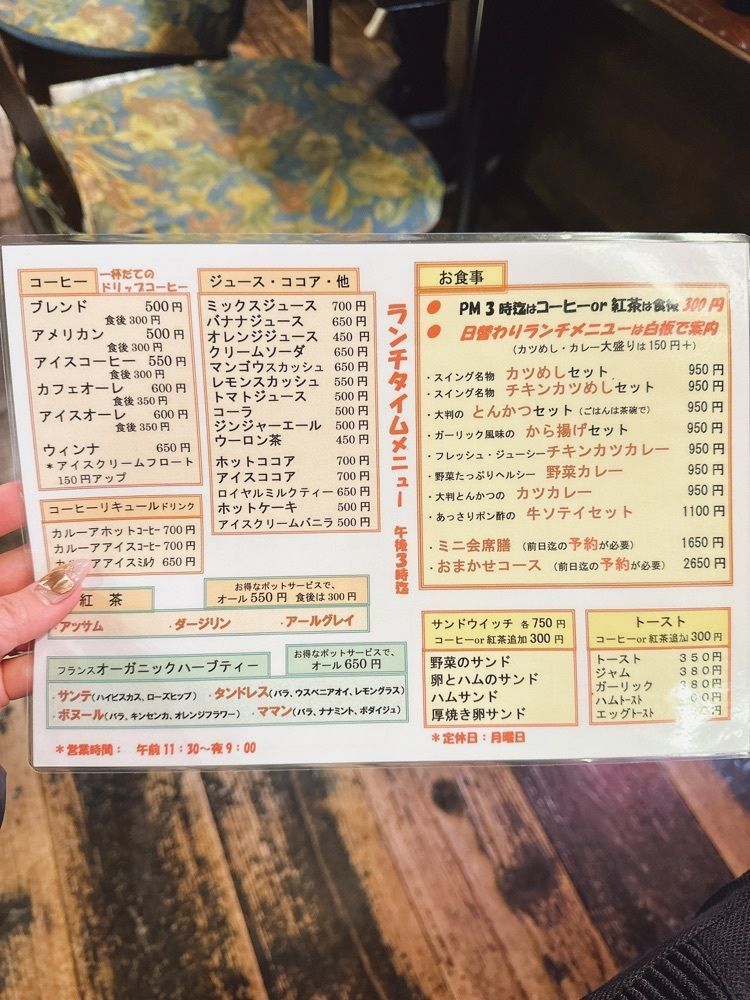 コーヒー 一杯だての
ドリップコーヒー
ブレンド 500円
食後300円
アメリカン 500円
食後300円
アイスコーヒー 550円
食後300円
カフェオーレ 600円
食後350円
アイスオーレ 600円
食後350円
ウィンナ 650円
*アイスクリームフロート
150円アップ
コーヒーリキュールドリンク
カルーアホットコーヒー 700円
カルーアアイスコーヒー 700円
アアイスミルク 650円
ジュース・ココア・他
ミックスジュース 700円
バナナジュース 650円
オレンジジュース 450円
クリームソーダ 650円
マンゴウスカッシュ 650円
レモンスカッシュ 550円
トマトジュース 500円
コーラ 500円
ジンジャーエール 500円
ウーロン茶 450円
ホットココア 700円
アイスココア 700円
ロイヤルミルクティー 650円
ホットケーキ 500円
アイスクリームバニラ 500円
紅茶
お得なポットサービスで、
オール550円 食後は300円
・アッサム ・ダージリン ・アールグレイ
フランスオーガニックハーブティー
お得なポットサービスで、
オール650円
・サンテ(ハイビスカス、ローズヒップ) ・タンドレス(バラ、ウスベニアオイ、レモングラス)
・ボヌール(バラ、キンセンカ、オレンジフラワー) ・ママン(バラ、ナナミント、ボダイジュ)
*営業時間: 午前11:30〜夜9:00
ランチタイムメニュー 午後3時迄
お食事
● PM3時迄はコーヒーor紅茶は食後300円
● 日替わりランチメニューは白板で案内
(カツめし・カレー大盛りは150円+)
・スイング名物 カツめしセット 950円
・スイング名物 チキンカツめしセット 950円
・大判の とんかつセット(ごはんは茶碗で) 950円
・ガーリック風味の から揚げセット 950円
・フレッシュ・ジューシーチキンカツカレー 950円
・野菜たっぷりヘルシー 野菜カレー 950円
・大判とんかつの カツカレー 950円
・あっさりポン酢の 牛ソテイセット 1100円
・ミニ会席膳 (前日迄の予約が必要) 1650円
・おまかせコース (前日迄の予約が必要) 2650円
サンドウイッチ 各750円
コーヒーor紅茶追加300円
野菜のサンド
卵とハムのサンド
ハムサンド
厚焼き卵サンド
トースト
コーヒーor紅茶追加300円
トースト 350円
ジャム 380円
ガーリック 380円
ハムトースト 00円
エッグトースト
*定休日:月曜日